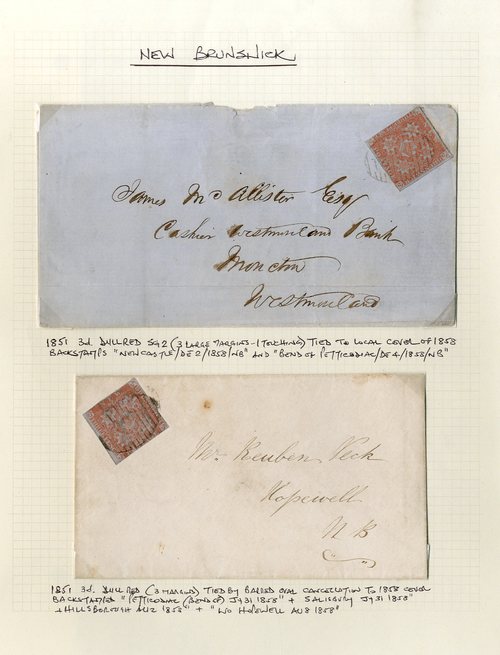 NEW BRUNSWICK
James Mc Allister Esqr
Cashier Westmorland Bank
Moncton
Westmorland
1851 3d. DULL RED SG2 (3 LARGE MARGINS - 1 TOUCHING) TIED TO LOCAL COVER OF 1858
BACKSTAMPS "NEWCASTLE/DE 2/1858/NB" AND "BEND OF PETTICODIAC/DE 4/1858/NB"
Mr. Reuben Peck
Hopewell
N B
1851 3d. DULL RED (3 MARGINS) TIED BY BARRED OVAL CANCELLATION TO 1858 COVER
BACKSTAMPED "PETTICODIAC (BEND OF) JY 31 1858" + SALISBURY JY 31 1858"
+ HILLSBOROUGH AU 2 1858" + "HOPEWELL AU 8 1858"